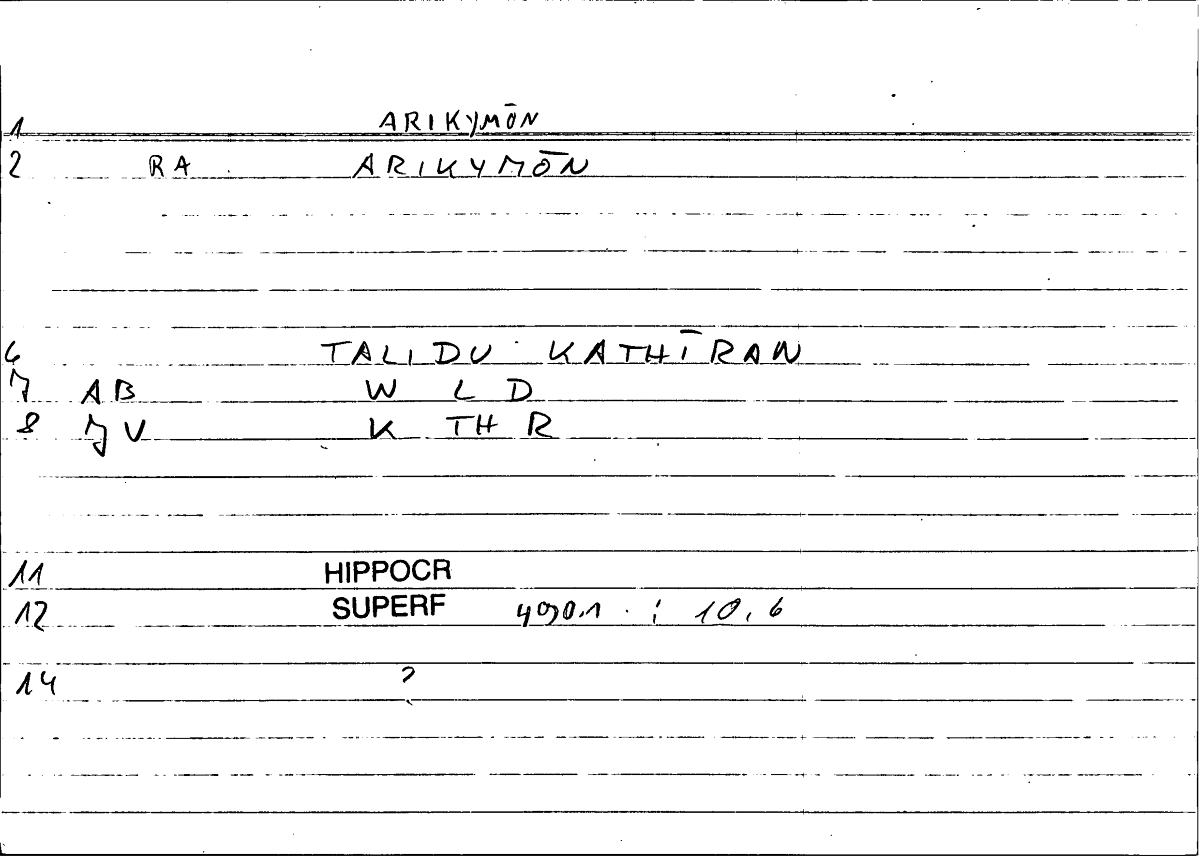 1 ARIKYMŌN
2 RA ARIKYMŌN
6 TALIDU KATHĪRAN
7 AB W L D
8 JV K TH R
11 HIPPOCR
12 SUPERF 490.1 ; 10,6
14 ?